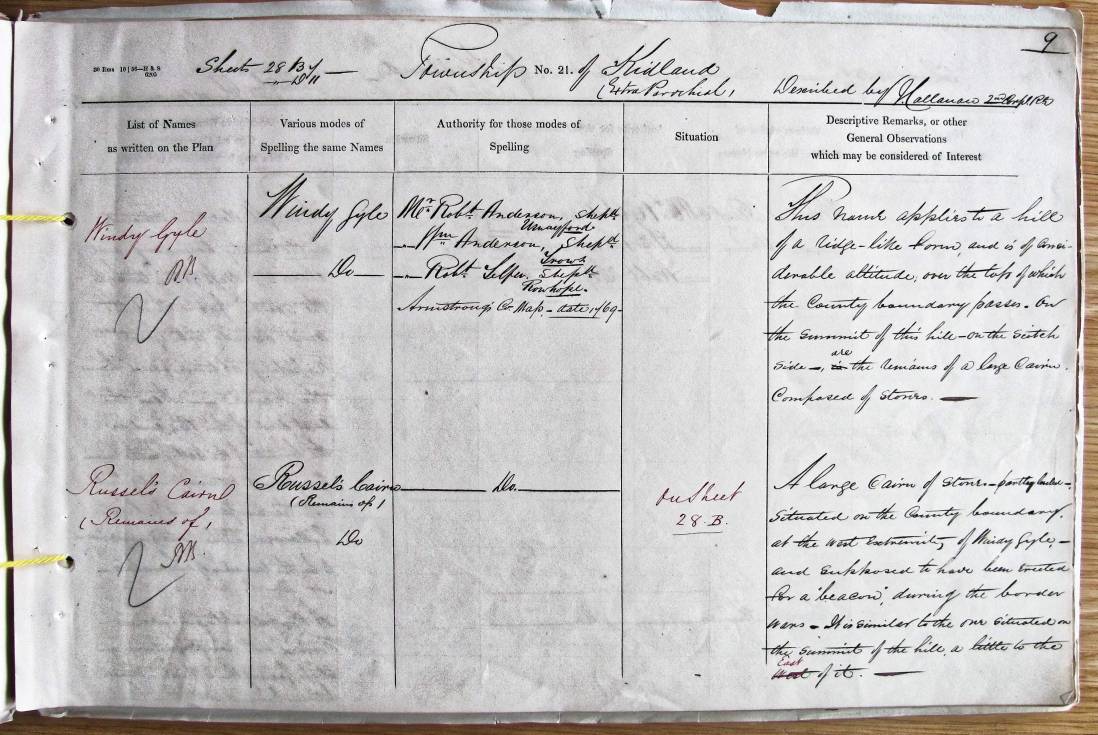 9
20 Rms 10 | 56—H & S
6205
Sheets 28 B
" D 11 —
Township No. 21. of Kidland
(Extra Parochial)
Described by Hallanan 2nd Corpl RE
List of Names
as written on the Plan
Various modes of
Spelling the same Names
Authority for those modes of
Spelling
Situation
Descriptive Remarks, or other
General Observations
which may be considered of Interest
Windy Gyle
Windy Gyle
Do
Mr. Robt. Anderson, Shepd
" Wm Anderson, Shepd
Trows
" Robt. Telfer, Shepd
Rowhope.
Armstrong's Co. Map, - date 1769-
This name applies to a hill
of a ridge-like form, and is of consi-
derable altitude, over the top of which
the County boundary passes. On
the summit of this hill - on the Scotch
side -, are is the remains of a large Cairn.
Composed of Stones. —
Russel's Cairn
(Remains of)
Russel's Cairn
(Remains of)
Do
Do.
On Sheet
28. B.
A large Cairn of Stones - partly -
Situated on the County boundary,
at the west extremity of Windy Gyle, -
and supposed to have been erected
for a "beacon", during the border
wars - It is similar to the one situated on
the summit of the hill, a little to the
East
West of it. —